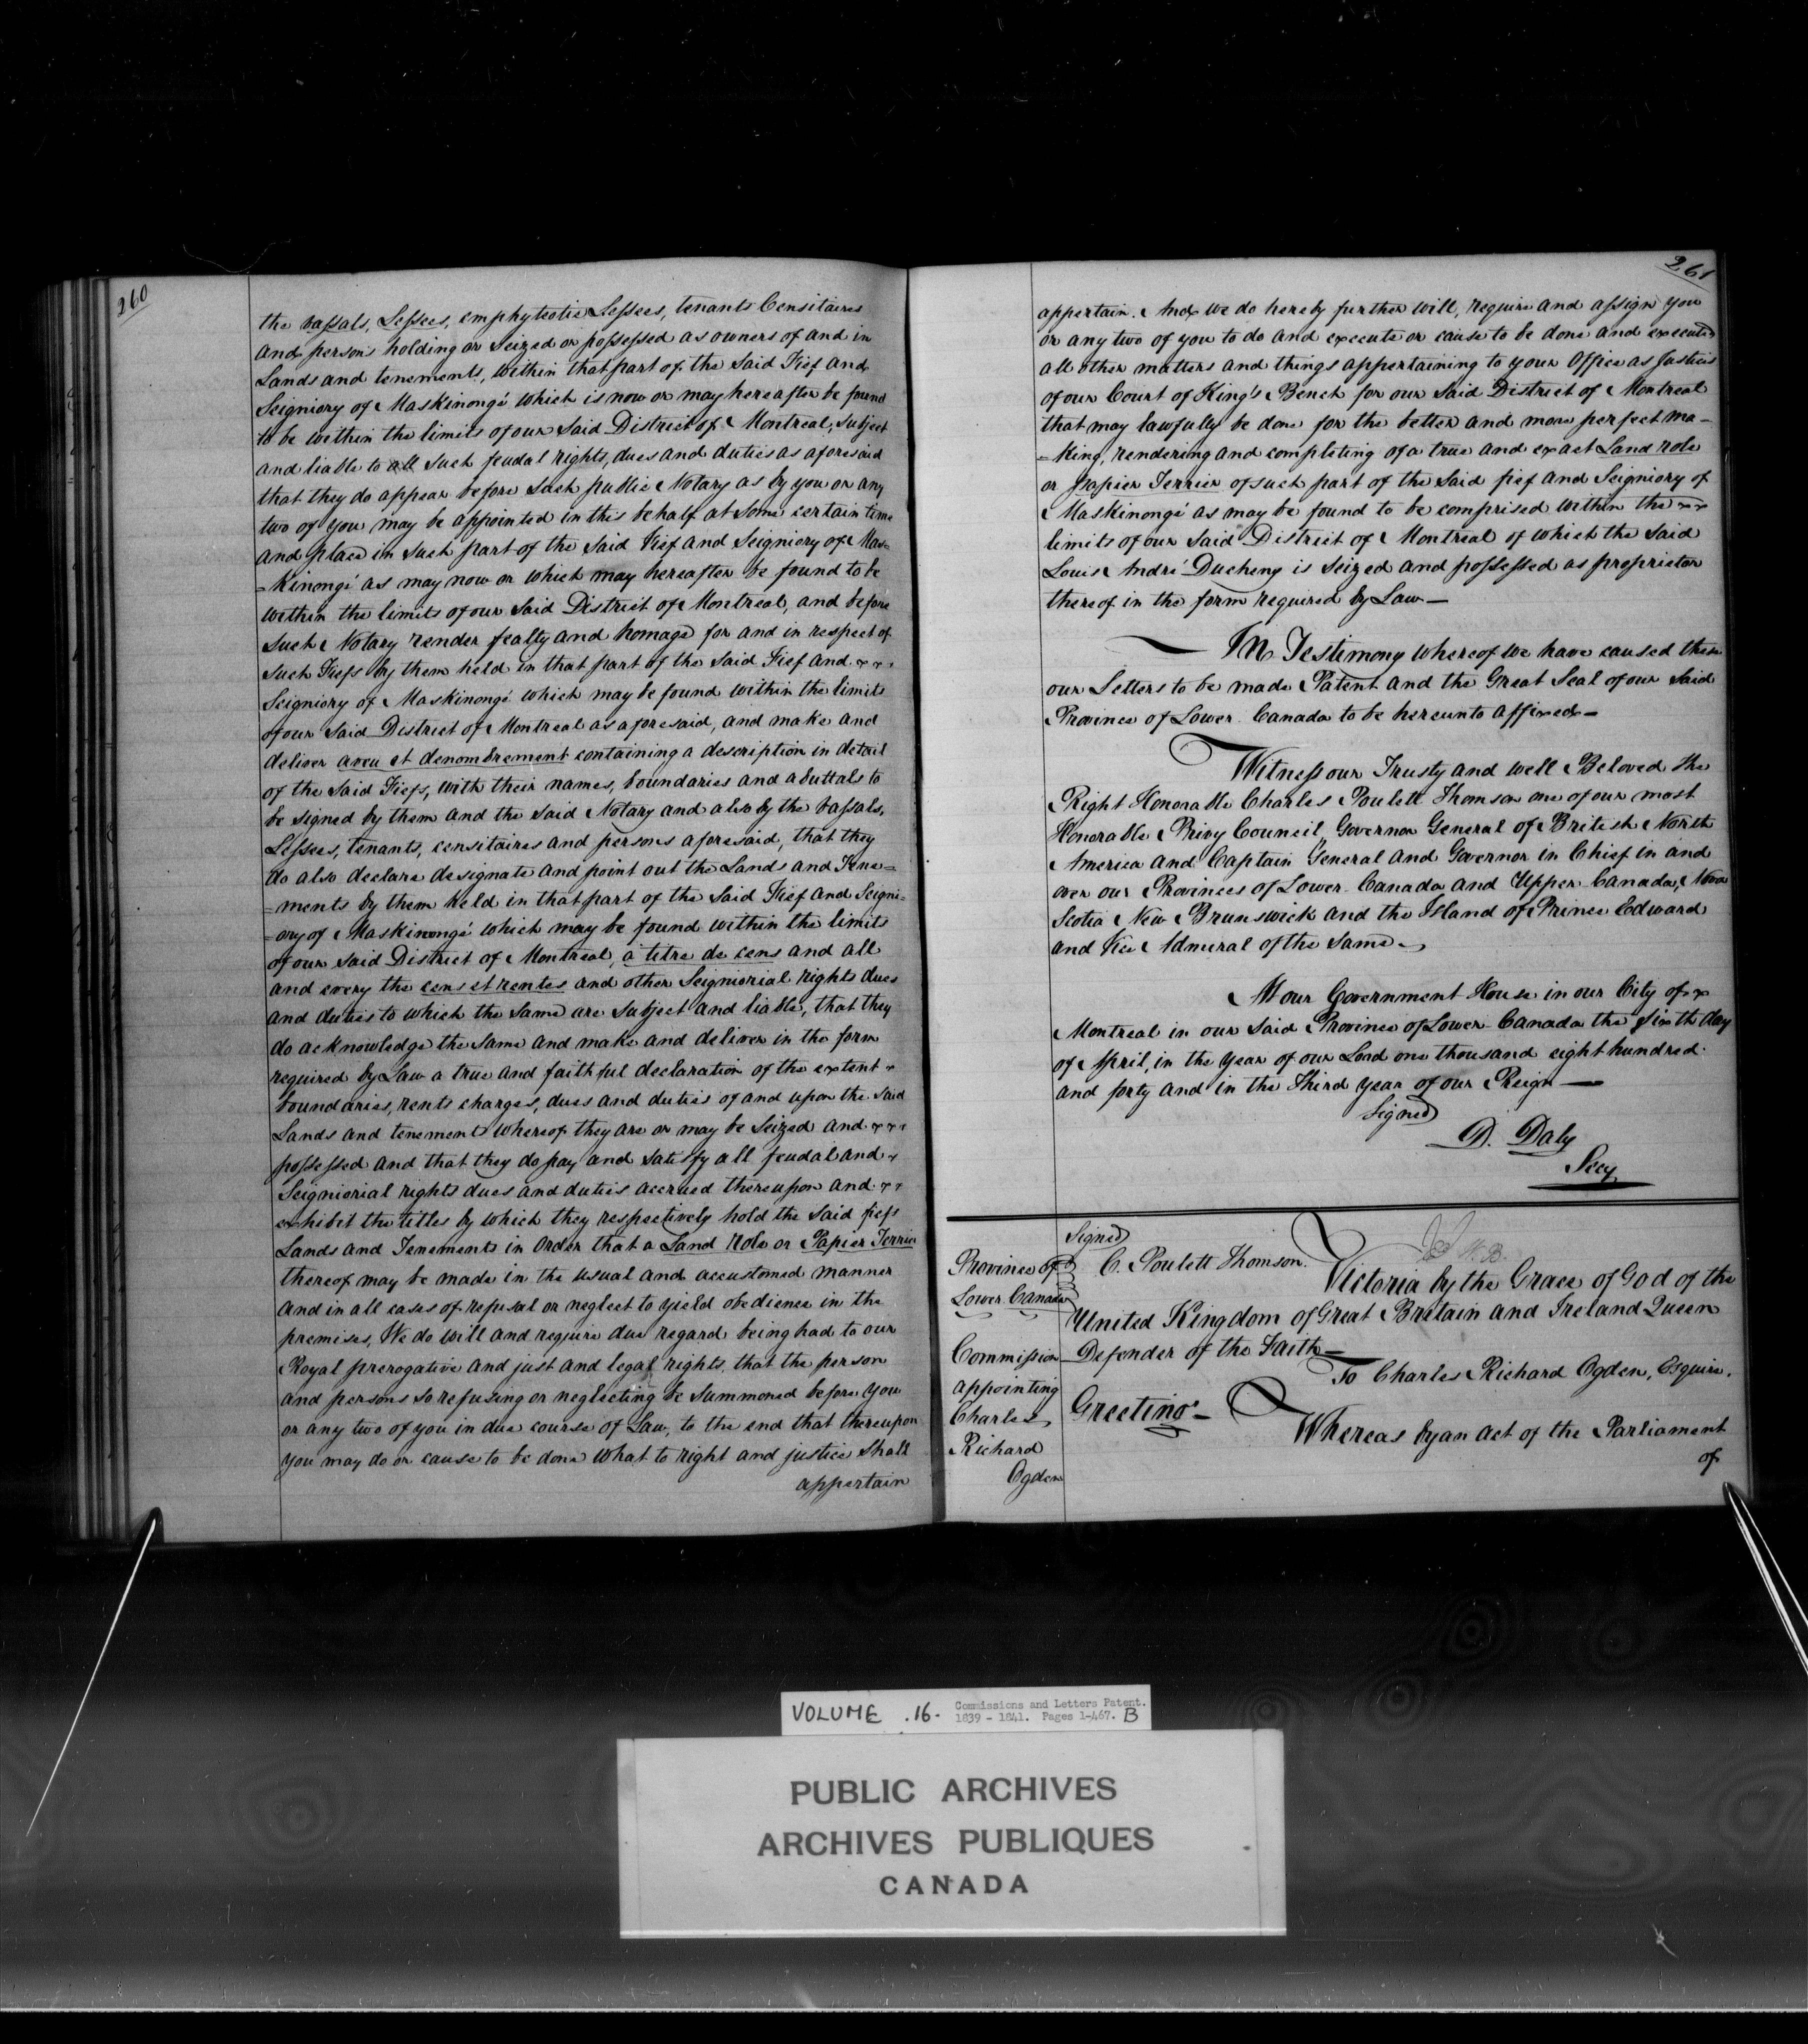 260
the vassals, Lessees, emphyteotic Lessees, tenants Censitaires
and persons holding or seized or possessed as owners of and in
Lands and tenements, within that part of the said Fief and
Seigniory of Maskinongé which is now or may hereafter be found
to be within the limits of our said District of Montreal, subject
and liable to all such feudal rights, dues and duties as aforesaid
that they do appear before such public Notary as by you or any
two of you may be appointed in this behalf at some certain time
and place in such part of the said Fief and Seigniory of Mas=
=kinongé as may now or which may hereafter be found to be
within the limits of our said District of Montreal, and before
such Notary render fealty and homage for and in respect of
such Fiefs by them held in that part of the said Fief and
Seigniory of Maskinongé which may be found within the limits
of our said District of Montreal as aforesaid, and make and
deliver aveu et denombrement containing a description in detail
of the said Fiefs, with their names, boundaries and abuttals to
be signed by them and the said Notary and also by the vassals,
Lessees, tenants, censitaires and persons aforesaid, that they
do also declare designate and point out the Lands and Tene=
=ments by them held in that part of the said Fief and Seigni=
=ory of Maskinongé which may be found within the limits
of our said District of Montreal, à titre de cens and all
and every the cens et rentes and other Seigniorial rights dues
and duties to which the same are subject and liable, that they
do acknowledge the same and make and deliver in the form
required by Law a true and faithful declaration of the extent
boundaries, rents charges, dues and duties of and upon the said
Lands and tenements whereof they are or may be seized and
possessed and that they do pay and satisfy all feudal and
Seigniorial rights dues and duties accrued thereupon and
exhibit the titles by which they respectively hold the said fiefs
Lands and Tenements in order that a Land Role or Papier Terrier
thereof may be made in the usual and accustomed manner
and in all cases of refusal or neglect to yield obedience in the
premises, We do will and require due regard being had to our
Royal prerogative and just and legal rights, that the person
and persons so refusing or neglecting be summoned before you
or any two of you in due course of Law, to the end that thereupon
you may do or cause to be done what to right and justice shall
appertain
261
appertain. And we do hereby further will, require and assign you
or any two of you to do and execute or cause to be done and executed
all other matters and things appertaining to your Office as Justices
of our Court of King's Bench for our said District of Montreal
that may lawfully be done for the better and more perfect ma-
=king, rendering and completing of a true and exact Land role
or Papier Terrier of such part of the said fief and Seigniory of
Maskinongé as may be found to be comprised within the
limits of our said District of Montreal of which the said
Louis André Ducheny is seized and possessed as proprietor
thereof in the form required by Law —
In Testimony whereof we have caused these
our Letters to be made Patent and the Great Seal of our said
Province of Lower Canada to be hereunto affixed —
Witness our Trusty and well Beloved the
Right Honorable Charles Poulett Thomson one of our most
Honorable Privy Council, Governor General of British North
America and Captain General and Governor in Chief in and
over our Provinces of Lower Canada and Upper Canada, Nova
Scotia New Brunswick and the Island of Prince Edward
and Vice Admiral of the same —
At our Government House in our City of
Montreal in our said Province of Lower Canada the sixth day
of April, in the year of our Lord one thousand eight hundred
and forty and in the third year of our Reign —
Signed
D. Daly
Secy
Signed
C. Poulett Thomson.
Province of
Lower Canada
Victoria by the Grace of God of the
United Kingdom of Great Britain and Ireland Queen
Defender of the Faith —
Commission
appointing
Charles
Richard
Ogden
To Charles Richard Ogden, Esquire.
Greeting —
Whereas by an act of the Parliament
of
VOLUME .16. Commissions and Letters Patent.
1839 - 1841. Pages 1-467. B
PUBLIC ARCHIVES
ARCHIVES PUBLIQUES
CANADA